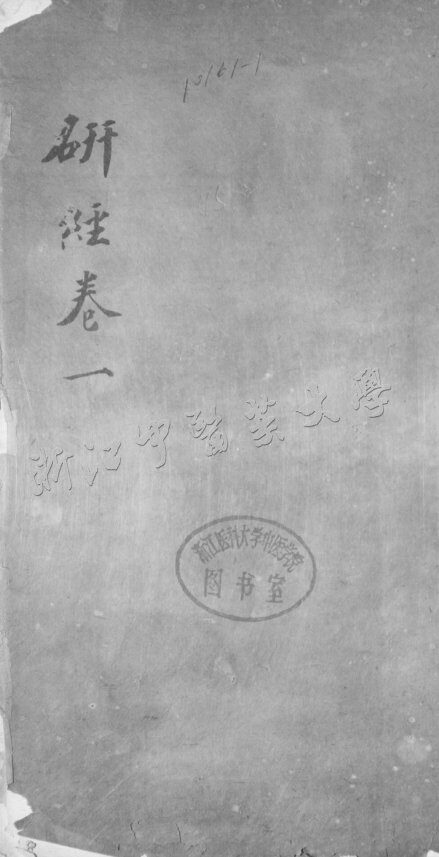 10161-1
研經卷一
浙江中醫藥大學
浙江医科大学中医学院
图书室